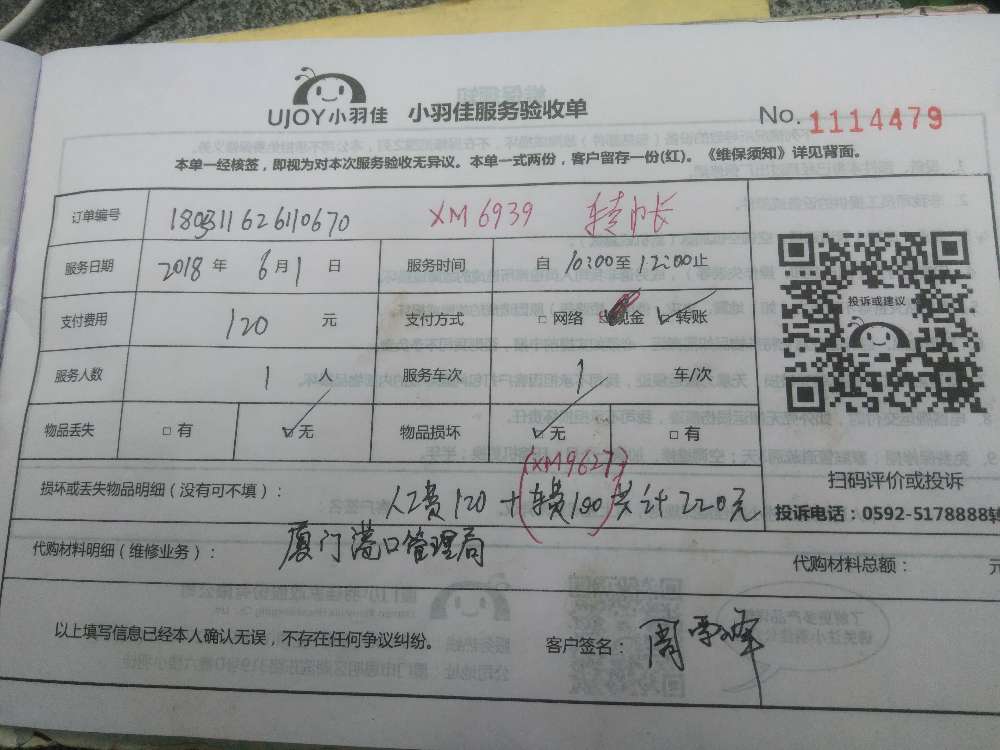 UJOY小羽佳 小羽佳服务验收单 No. 1114479
本单一经核签，即视为对本次服务验收无异议。本单一式两份，客户留存一份(红)。《维保须知》详见背面。
订单编号 XM6939 转帐
服务日期 2018 年 6 月 1 日 服务时间 自 10:00 至 12:00 止
支付费用 120 元 支付方式 □ 网络 现金 ☑ 转账
投诉或建议
服务人数 1 人 服务车次 1 车/次
物品丢失 □ 有 ☑ 无 物品损坏 ☑ 无 □ 有
(XM9627)
损坏或丢失物品明细（没有可不填）： 人工费120 + 车费100 共计220元
扫码评价或投诉
投诉电话：0592-5178888转
代购材料明细（维修业务）： 厦门港口管理局 代购材料总额： 元
以上填写信息已经本人确认无误，不存在任何争议纠纷。 客户签名：